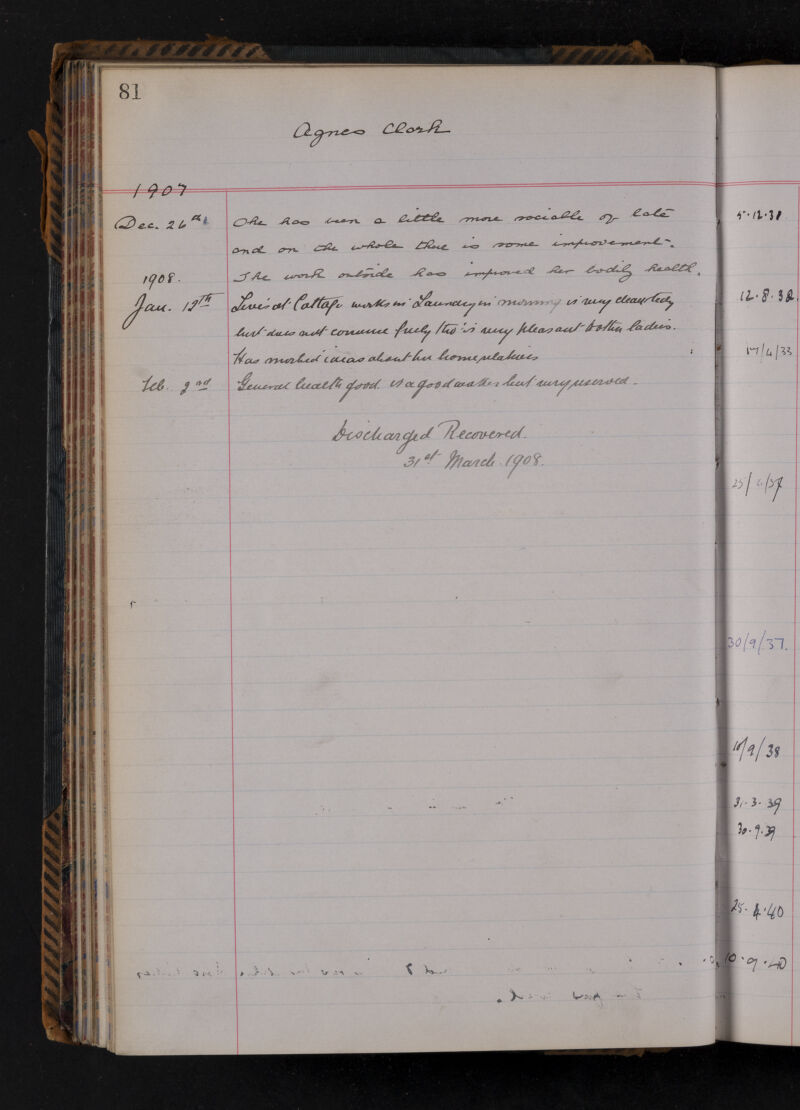 81
Agnes Clark
1907
Dec. 26th She has been a little more sociable of late
and on the whole there is some improvement.
1908. The work outside has improved her bodily health.
Jan. 12th Lives at Cottage works in Laundry in morning is very
but does not converse freely tho' is very pleasant to other ladies.
Has morbid ideas about her home relatives
Feb. 2nd General health good is a good but very reserved.
Discharged Recovered.
31st March. 1908.
5.12.31
12.8.32.
17/4/33
25/ /37
30/9/37.
10/9/38
31.3.39
30.9.39
25.4.40
10.9.40